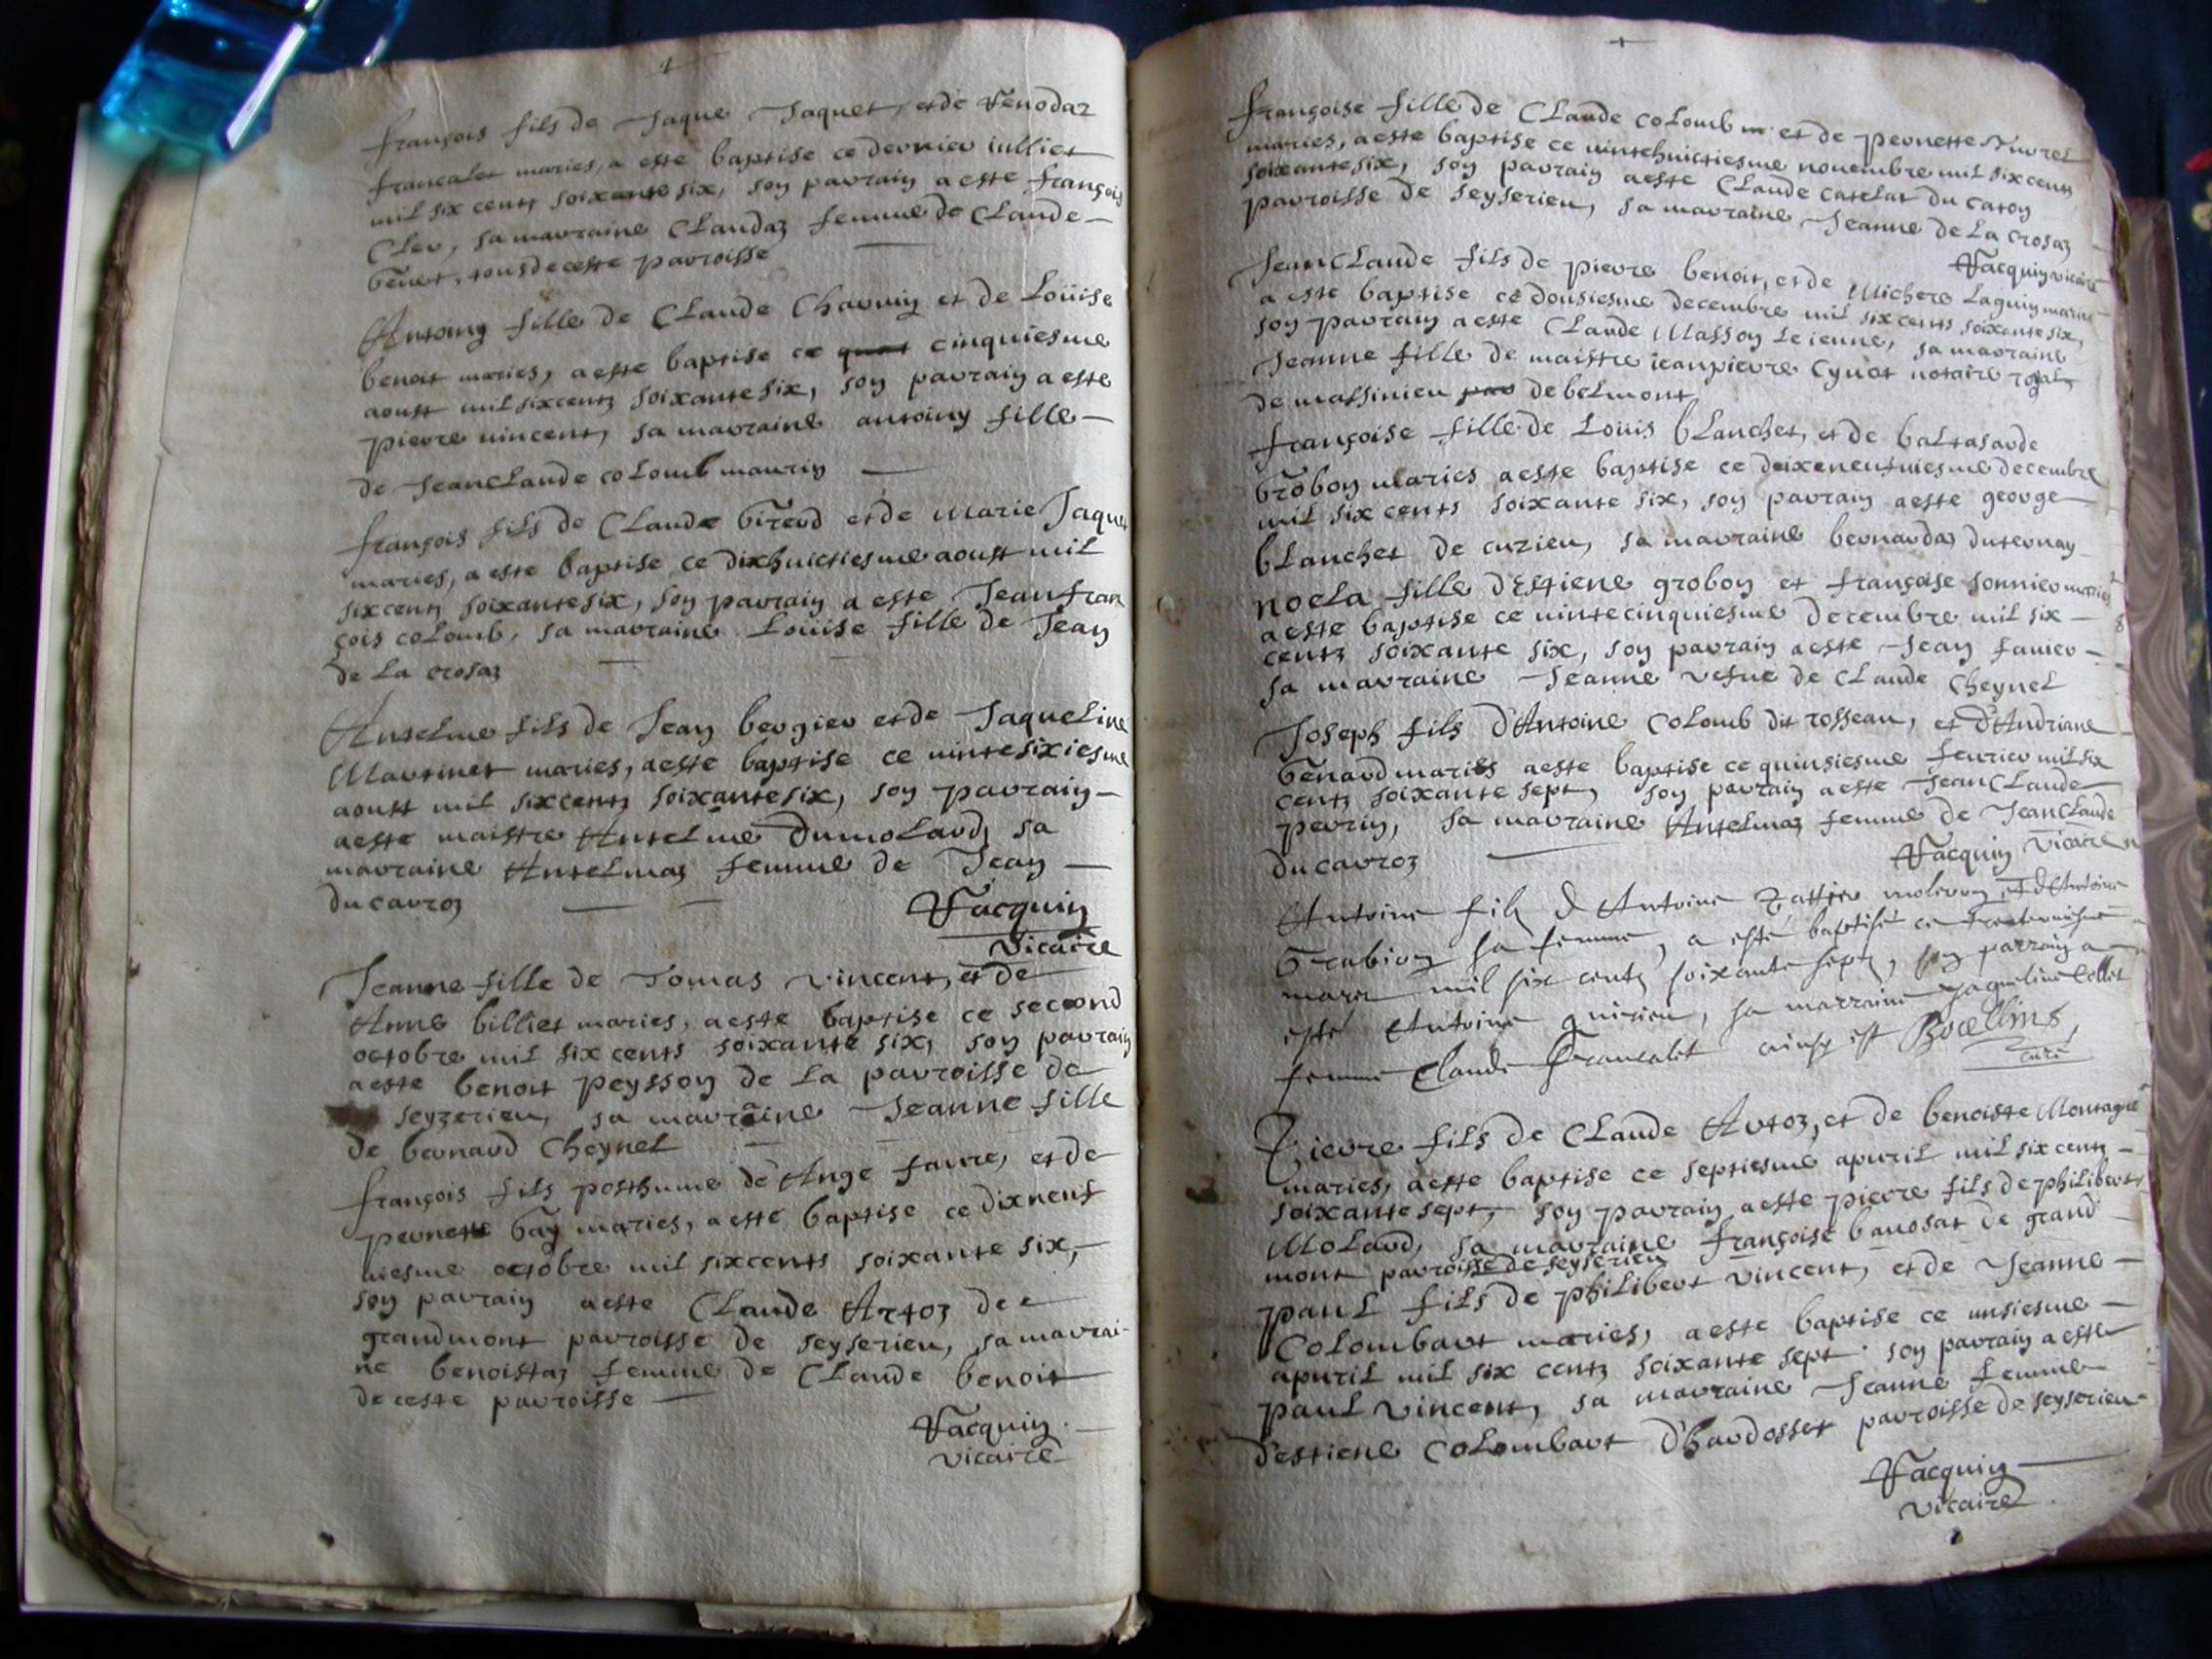 françois fils de Jaque Jaquet, et de
francalet maries, a este baptise ce dernier iulliet
mil six cents soixante six, son parrain a este françois
Cler, sa marraine Claudaz femme de Claude
benet, tous de ceste parroisse
Antoiny fille de Claude Charvin et de Loüise
benoit maries, a este baptise ce quat cinquiesme
aoust mil sixcents soixante six, son parrain a este
pierre vincent, sa marraine antoiny fille
de Jeanclaude colomb maurin
françois fils de Claude Girerd et de Marie Jaque
maries, a este baptise ce dixhuictiesme aoust mil
sixcents soixantesix, son parrain a este Jeanfran
çois colomb, sa marraine Loüise fille de Jean
de la crosaz
Anselme fils de Jean bergier et de Jaqueline
Martinet maries, a este baptise ce vintesixiesme
aoust mil sixcents soixantesix, son parrain
a este maistre Anselme Dumolard, sa
marraine Anselmaz femme de Jean
ducarroz
Jacquin
vicaire
Jeanne fille de Tomas vincent, et de
Anne billiet maries, a este baptise ce second
octobre mil six cents soixante six, son parrain
a este benoit peysson de la parroisse de
seyzerieu, sa marraine Jeanne fille
de bernard Cheynel
françois fils posthume de Ange favre, et de
pernette Gay maries, a este baptise ce dixneuf
viesme octobre mil sixcents soixante six,
son parrain a este Claude Artoz de
grandmont parroisse de seyserieu, sa marrai
ne benoistaz femme de Claude benoit
de ceste parroisse
Jacquin
vicaire
françoise fille de Claude colomb et de pernette
maries, a este baptise ce vintehuictiesme novembre mil six cents
soixantesix, son parrain a este Claude catelat du caton
parroisse de seyserieu, sa marraine Jeanne de la crosaz
Jacquin vicaire
JeanClaude fils de pierre benoit, et de Michere Laguin maries
a este baptise ce dousiesme decembre mil six cents soixante six,
son parrain a este Claude Masson le ieune, sa marraine
Jeanne fille de maistre ieanpierre Cynot notaire royal
de massinieu par de belmont
françoise fille de Loüis blanchet, et de baltasarde
Grobon maries a este baptise ce dixeneufviesme decembre
mil six cents soixante six, son parrain a este george
blanchet de cuzieu, sa marraine bernardaz duternay
noela fille d'Estiene grobon et françoise sonnier maries
a este baptise ce vintecinquiesme decembre mil six
cents soixante six, son parrain a este Jean favier
sa marraine Jeanne vefue de Claude Cheynel
Joseph fils d'Antoine colomb dit rosseau, et d'Andriane
Genard maries a este baptise ce quinsiesme feurier mil six
cents soixante sept, son parrain a este JeanClaude
perrin, sa marraine Anselmaz femme de Jeanclaude
ducarroz
Jacquin vicaire
Antoine filz d'Antoine et d'Antoine
Grabion sa femme, a esté baptisé ce
mars mil six centz soixante sept, son parrain a
esté Antoine quirieu, sa marraine Jaqueline Collet
femme Claude francalet ainsy est
curé
Pierre fils de Claude Artoz, et de benoiste Montagne
maries, a este baptise ce septiesme apuril mil six cents
soixante sept, son parrain a este pierre fils de philibert
Molard, sa marraine françoise banosat de grand
mont parroisse de seyserieu
paul fils de philibert vincent, et de Jeanne
Colombart maries, a este baptise ce unsiesme
apuril mil six cents soixante sept. son parrain a este
paul vincent, sa marraine Jeanne femme
d'estiene colombart d'hardosset parroisse de seyserieu
Jacquin
vicaire